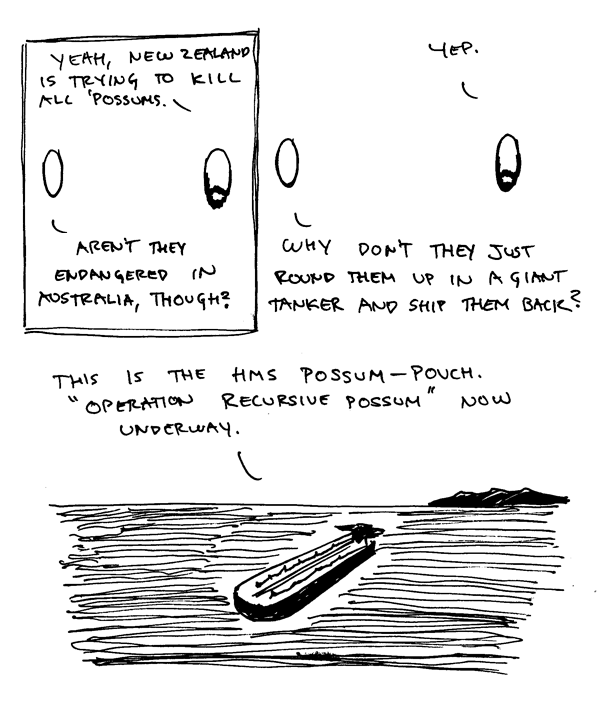 YEAH, NEW ZEALAND
IS TRYING TO KILL
ALL 'POSSUMS.
AREN'T THEY
ENDANGERED IN
AUSTRALIA, THOUGH?
YEP.
WHY DON'T THEY JUST
ROUND THEM UP IN A GIANT
TANKER AND SHIP THEM BACK?
THIS IS THE HMS POSSUM-POUCH.
"OPERATION RECURSIVE POSSUM" NOW
UNDERWAY.